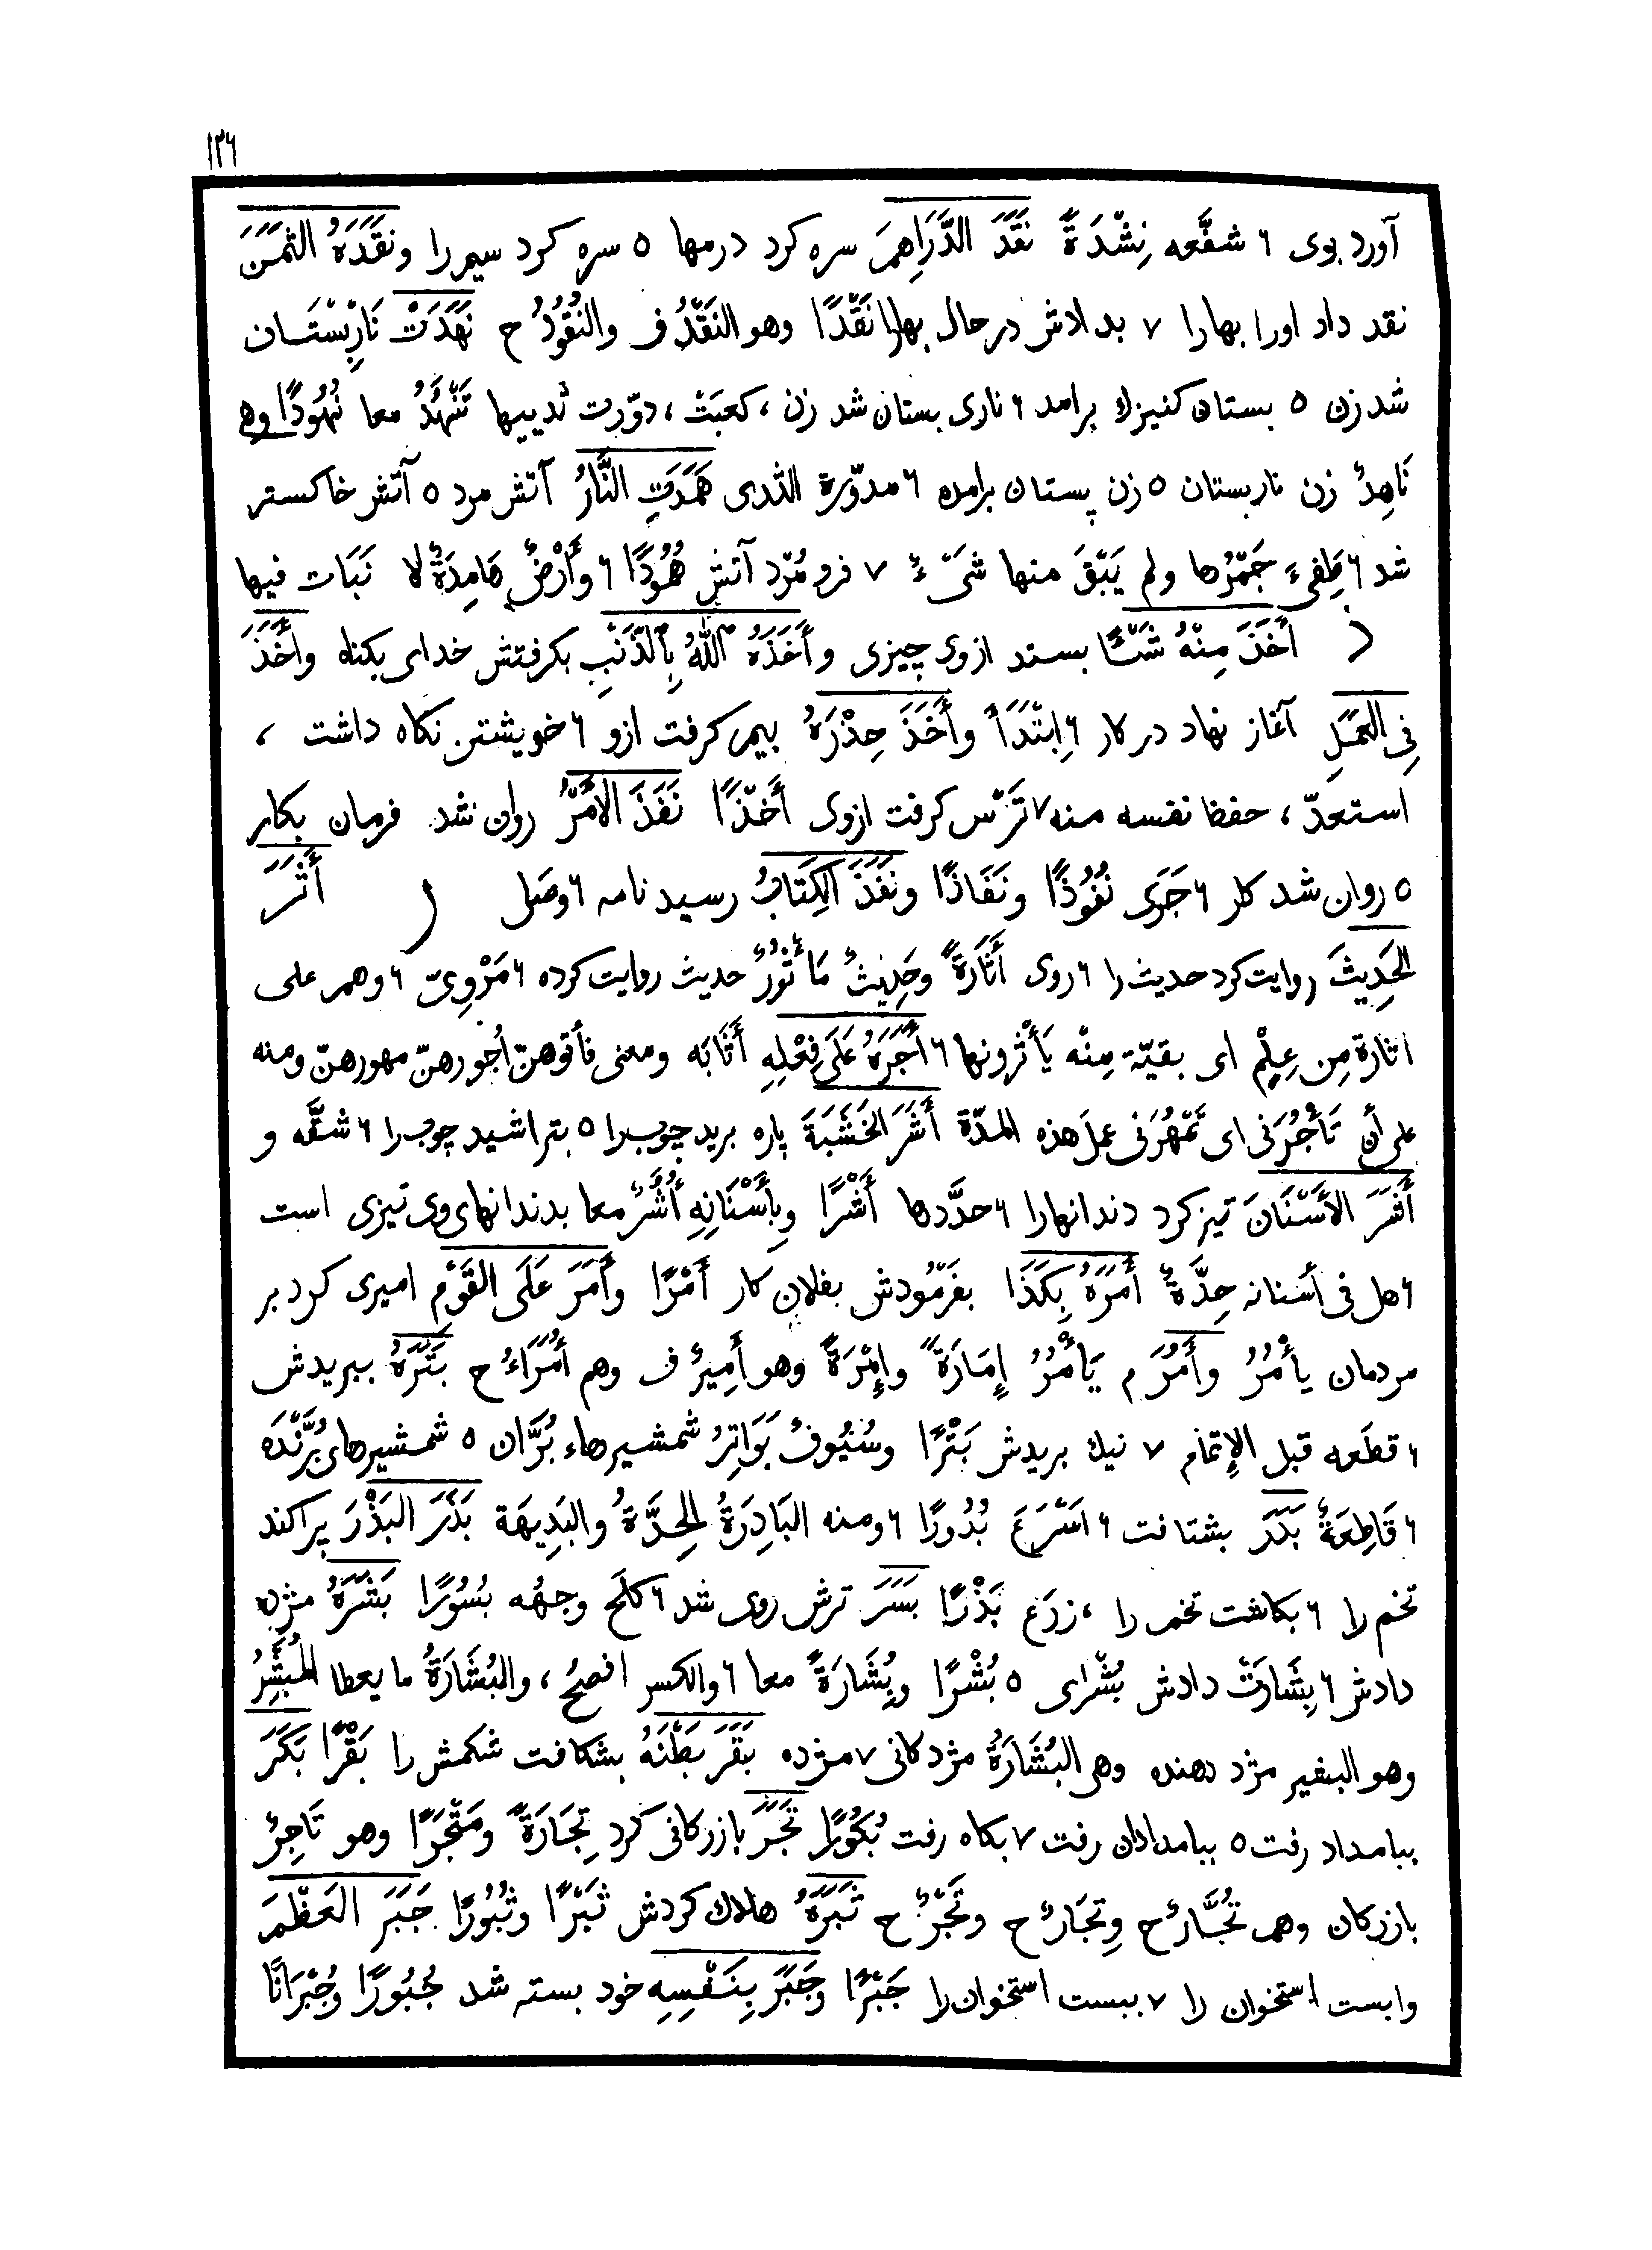 ١٢٦
آورد بوی ٦ شفَّعه نِشْدَةً نَقَدَ الدَّرَاهِمَ سره کرد درمها ٥ سره کرد سیم را ونَقَدَهُ الثمَنَ
نقد داد اورا بهارا ٧ بدلاش در حال بهارا نَقْدًا وهو النَقْدُ ف والنُقُودُ ح نَهَدَتْ نَارِبِسْتَان
شد زن ٥ بستان کنیزك برامد ٦ ناری بستان شد زن ، کعبَتْ ، دوّرت ثدییها تَنْهُدُ معا نُهُودًا وهی
نَاهِدٌ زن ناربستان ٥ زن پستان برامده ٦ مدوّرة الثدی هَمَدَتِ النَّارُ آتش مرد ٥ آتش خاکستر
شد ٦ طَفِیءَ جَمْرُها ولم یَبْقَ منها شَیْءٌ ٧ فرو مُرد آتش هُمُودًا ٦ وأَرْضٌ هَامِدَةٌ لا نَبَات فیها
ذ أَخَذَ مِنْهُ شَيْئًا بستد ازوی چیزی وأَخَذَهُ اللهُ بِالذَّنْبِ بکرفتش خدای بکناه وأَخَذَ
فِی العَمَلِ آغاز نهاد در کار ٦ اِبْتَدَأَ وأَخَذَ حِذْرَهُ بیم کرفت ازو ٦ خویشتن نکاه داشت ،
استعدّ ، حفظ نفسه منه ٧ تَرْس کرفت ازوی أَخْذًا نَفَذَ الأَمْرُ روان شد فرمان بکار
٥ روان شد کار ٦ جَرَی نُفُوذًا ونَفَاذًا ونَفَذَ الکِتَابُ رسید نامه ٦ وصَل ر أَثَرَ
الحَدِیثَ روایت کرد حدیث را ٦ روی أَثَارَةً وحَدِیثٌ مَأثُورٌ حدیث روایت کرده ٦ مَرْوِیّ ٦ وهم علی
اثارة مِن عِلْمٍ ای بقیّة مِنْه یَأْثرونها ٦ أَجَرَهُ عَلَی فِعْلِهِ أَثَابَه ومعنی فأتوهنّ أجورهنّ مهورهنّ ومنه
علی أن تَأْجُرَنی ای تَمْهُرَنی عمل هذه المدّة أَشَرَ الخَشَبَةَ پاره برید چوب را ٥ بتراشید چوب را ٦ شقَّه و
أَشَرَ الأَسْنَانَ تیز کرد دندانهارا ٦ حدَّدها أَشْرًا وبِأَسْنَانِهِ أُشُرٌ معا بدندانهای وی تیزی است
٦ هل فی أسنانه حِدَّةٌ أَمَرَهُ بِکَذَا بفَرْمُودش بفلان کار أَمْرًا وأَمَرَ عَلَی القَوْمِ امیری کرد بر
مردمان یأْمُرُ وأَمُرَ م یَأْمُرُ إِمَارَةً وإِمْرَةً وهو أَمِیرٌ ف وهم أُمَرَاءُ ح بَتَرَهُ ببریدش
٦ قطَعه قبل الإتمام ٧ نیك بریدش بَتْرًا وسُیُوفٌ بَوَاتِرُ شمشیرهاء بُرَّان ٥ شمشیرهای بُرَّنْدَه
٦ قَاطِعَةٌ بَدَرَ بشتافت ٦ اَسْرَعَ بُدُورًا ٦ ومنه البَادِرَةُ لِلحِدَّةِ والبَدِیهَة بَذَرَ البَذْرَ پراکند
تخم را ٦ بکاشت تخم را ، زرَع بَذْرًا بَسَرَ ترش روی شد ٦ کلَح وجهُه بُسُورًا بَشَرَهُ مژده
دادش ٦ بِشَارَتْ دادش بُشْرای ٥ بُشْرًا وبُِشَارَةً معا ٦ والکسر افصحُ ، والبُشَارَةُ ما یعطا المُبَشِّرُ
وهو البشیر مژد دهنده وهی البُشَارَةُ مژدکانی ٧ مژده بَقَرَ بَطْنَهُ بشکافت شکمش را بَقْرًا بَکَرَ
ببامداد رفت ٥ ببامدادان رفت ٧ بکاه رفت بُکُورًا تَجَرَ بازرکانی کرد تِجَارَةً ومَتْجَرًا وهو تَاجِرٌ
بازرکان وهم تُجَّارٌ ح وتِجَارٌ ح وتَجْرٌ ح ثَبَرَهُ هلاك کردش ثَبْرًا وثُبُورًا جَبَرَ العَظْمَ
وابست استخوان را ٧ ببست استخوان را جَبْرًا وجَبَرَ بِنَفْسِهِ خود بسته شد جُبُورًا وجُبْرَانًا